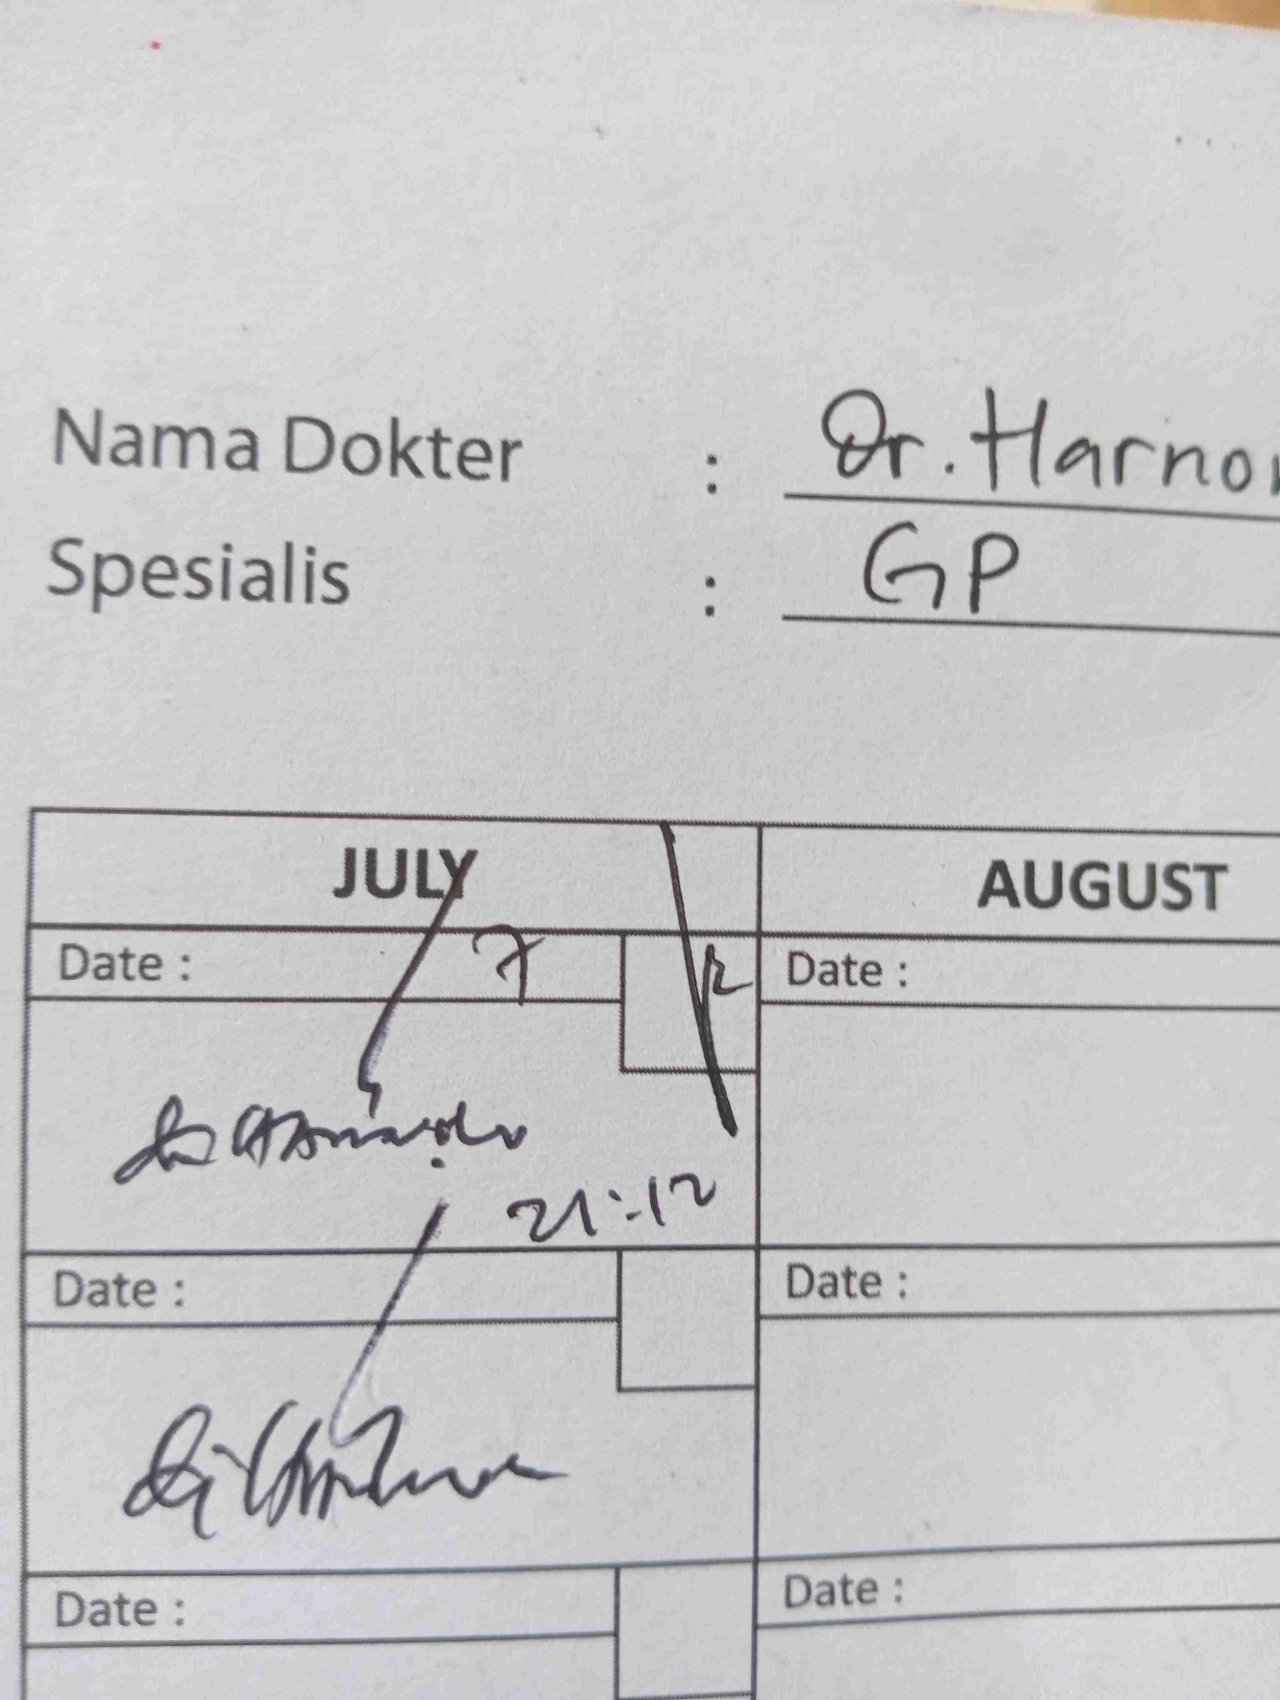 Nama Dokter : Dr. Harnon
Spesialis : GP
JULY AUGUST
Date : 7 Date :
21:12
Date : Date :
Date : Date :